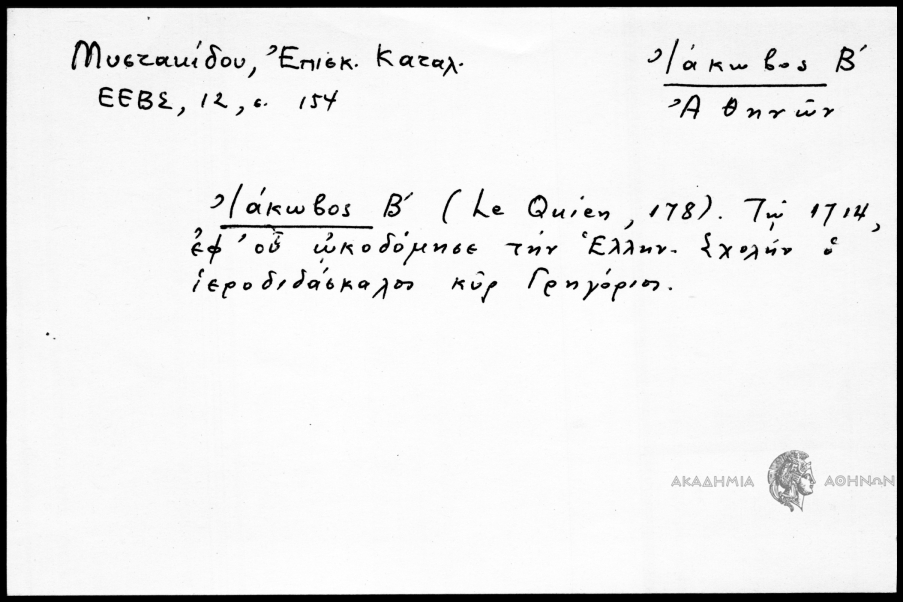 Μυστακίδου, Ἐπισκ. Καταλ.
ΕΕΒΣ, 12, σ. 154
Ἰάκωβος Β΄
Ἀθηνῶν
Ἰάκωβος Β΄ (Le Quien, 178). Τῷ 1714,
ἐφ' οὗ ᾠκοδόμησε τὴν Ἑλλην. Σχολὴν ὁ
ἱεροδιδάσκαλος κῦρ Γρηγόριος.
ΑΚΑΔΗΜΙΑ ΑΘΗΝΩΝ